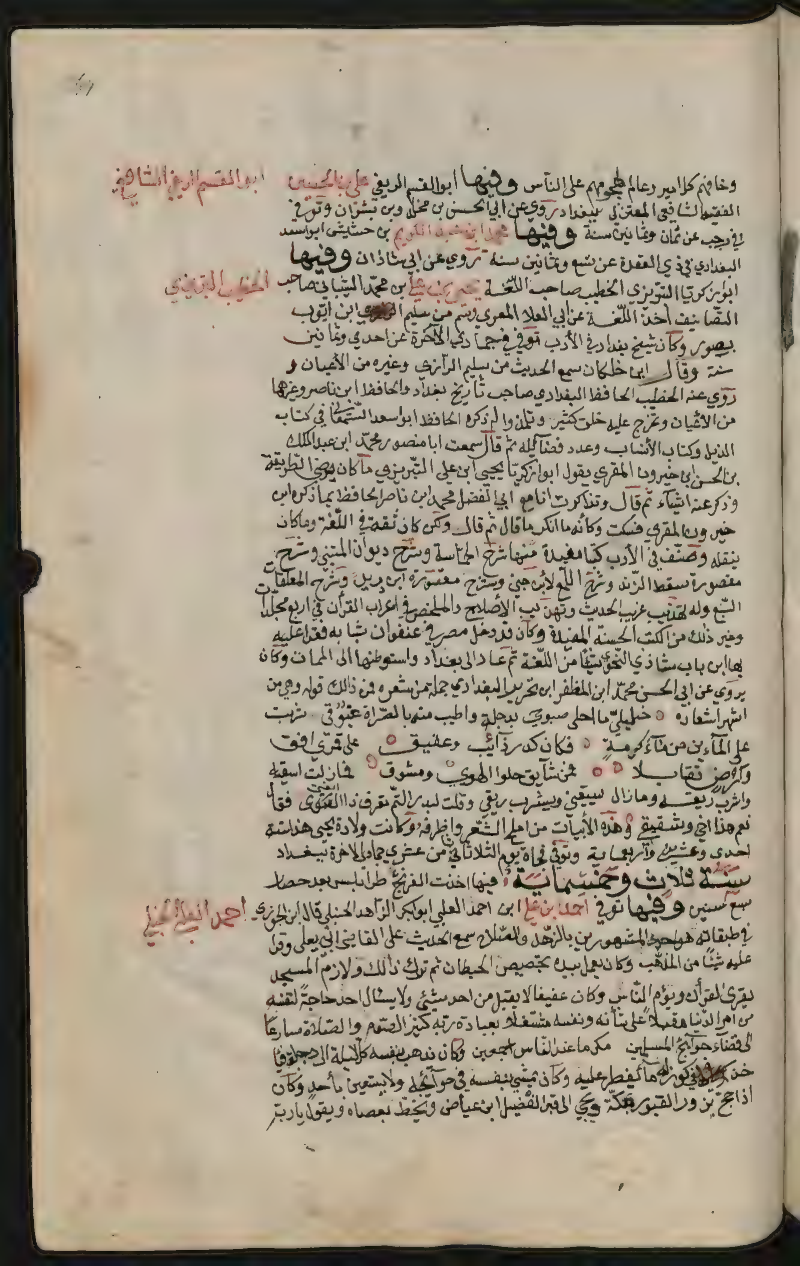 وخافهم كل امير وعالم لهجومهم على الناس وفيها ابو القسم الربعي علي بن الحسين
ابو القسم الربعي الشافعي
الفقيه الشافعي المعتزلي ببغداد روي عن ابي الحسن بن محمد وبن بشران وتوفي
في رجب عن ثمان وثمانين سنة وفيها محمد ابن عبد الكريم بن حشيش ابو سعد
البغدادي في ذي القعدة عن تسع وثمانين سنة روي عن ابي شاذان وفيها
ابو زكريا التبريزي الخطيب صاحب اللغة يحيى بن علي ابن محمد الشيباني صاحب
الخطيب التبريزي
التصانيف اخذ اللغة عن ابي العلا المعري وسمع من سليم ابن ايوب
بصور وكان شيخ بغداد في الأدب توفي في جمادي الآخرة عن احدي وثمانين
سنة وقال ابن خلكان سمع الحديث من سليم الرازي وغيره من الأعيان و
روي عنه الخطيب الحافظ البغدادي صاحب تأريخ بغداد والحافظ ابن ناصر وغيرهما
من الأعيان وتخرج عليه خلق كثير وتلمذوا له ذكره الحافظ ابو اسعد السمعاني في كتاب
الذيل وكتاب الأنساب وعدد فضائله ثم قال سمعت ابا منصور محمد ابن عبد الملك
بن الحسن ابن خيرون المقري يقول ابو زكريا يحيى ابن علي التبريزي ما كان برضي الطريقة
وذكر عنه اشيآء ثم قال وتذاكرت انا مع ابي الفضل محمد ابن ناصر الحافظ بما ذكره ابن
خيرون المقري فسكت وكأنه ما انكر ما قال ثم قال ولكن كان ثقة في اللغة وما كان
ينقله وصنف في الأدب كتبا مفيدة منها شرح الحماسة وشرح ديوان المتنبي وشرح
مقصورة سقط الزند وشرح اللمع لابن جني وشرح مقصورة ابن دريد وشرح المعلقات
السبع وله تهذيب غريب الحديث وتهذيب الأصلاح والملخص في اعراب القرآن في اربع مجلدات
وغير ذلك من الكتب الحسنة المفيدة وكان قد دخل مصر في عنفوان شبابه فقرأ عليه
بها ابن باب شاذ النحوي شيئا من اللغة ثم عاد الى بغداد واستوطنها الى الممات وكان
يروي عن ابي الحسن محمد ابن المظفر ابن البغدادي جملة من شعره فمن ذلك قوله وهي من
اشهر اشعاره خليليّ ما احلى صبوحي بدجلة واطيب منه بالصراة غبوقي شربت
على المآءين من مآء كرمة فكان كدر ذآئب وعقيق على قمري افق
وارض تقابلا فمن شآيق حلوا الهوى ومشوق فما زلت اسقيه
واشرب ريقه وما زال يسقيني ويشرب ريقي وقلت لبدر التم تعرف ذا الفتى فقال
نعم هذا اخي وشقيقي وهذه الأبيات من املح الشعر واظرفه وكانت ولادة يحيى هذا سنة
احدى وعشرين وأربعماية وتوفي فجاة يوم الثلاثا ثامن عشري جمادى الآخرة ببغداد
سنة ثلاث وخمسماية فيها اخذت الفرنج طرابلس بعد حصار
سبع سنين وفيها توفي احمد بن علي ابن احمد العلبي ابو بكر الزاهد الحنبلي قال ابن الجوزي
احمد العلبي الحنبلي
في طبقاته هو احد المشهورين بالزهد والصلاح سمع الحديث على القاضي ابي يعلى وقرا
عليه شيئا من المذهب وكان يعمل بيده تجصيص الحيطان ثم ترك ذلك ولازم المسجد
يقري القرآن ويؤم الناس وكان عفيفا لا يقبل من احد شيئ ولا يسئال احد حاجة لنفسه
من امر الدنيا مقبلا على شأنه ونفسه مشتغلا بعبادة ربه كثير الصوم والصلاة مسارعا
الى قضآء حوآئج المسلمين مكرما عند الناس اجمعين وكان يذهب بنفسه كل ليلة الى دجلة
كوز له ما يفطر عليه وكان يمشي بنفسه في حوآئجه ولا يستعين بأحد وكان
اذا حج يزور القبور بمكة ويجي الى قبر الفضيل ابن عياض ويخط بعصاه ويقول يا رب